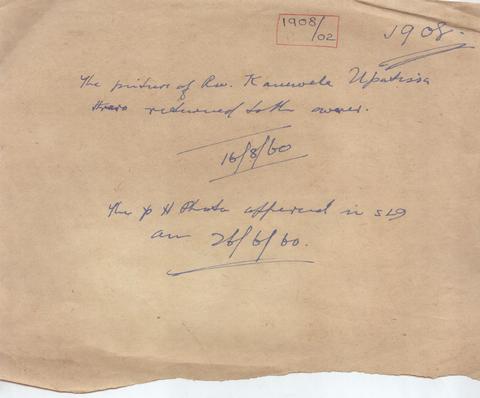 1908/02
1908.
The picture of Rev. Kanewela Upatissa
thero returned to the owner.
16/8/60
The photo appeared in
on 26/6/60.